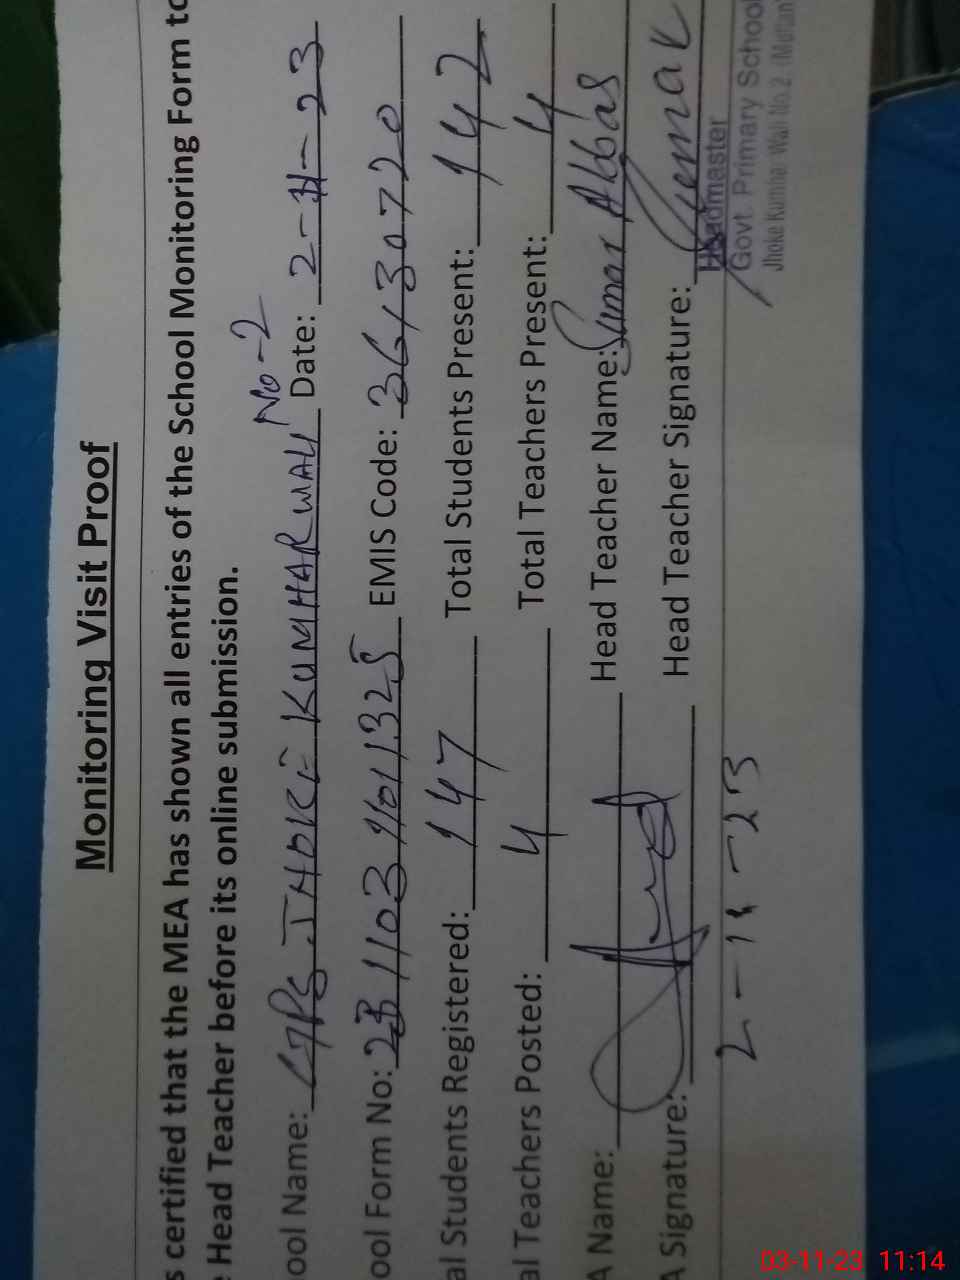 Monitoring Visit Proof
s certified that the MEA has shown all entries of the School Monitoring Form to
e Head Teacher before its online submission.
ool Name: GPS JHOKE KUMHAR WALI No-2 Date: 2-11-23
ool Form No: 23 1103 401 1325 EMIS Code: 36130720
al Students Registered: 147 Total Students Present: 142
al Teachers Posted: 4 Total Teachers Present: 4
A Name: Head Teacher Name: Qumar Abbas
A Signature: Head Teacher Signature:
2-11-23
Headmaster
Govt. Primary School
Jhoke Kumhar Wali No.2. (Multan
03-11-23 11:14